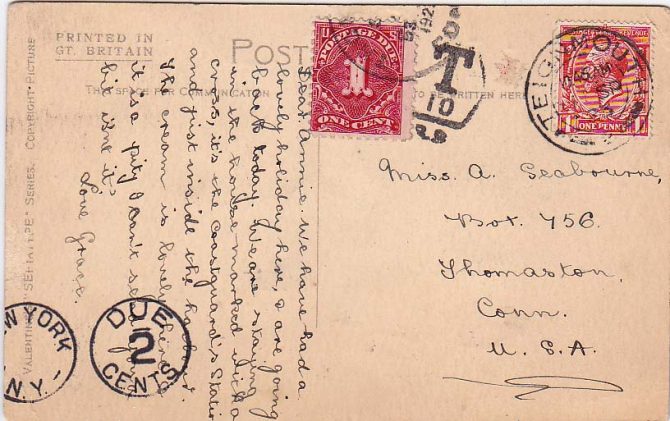 PRINTED IN
GT. BRITAIN
POST
THIS SPACE FOR COMMUNICATION
TO BE WRITTEN HERE
VALENTINE'S "SEPIATYPE" SERIES. COPYRIGHT PICTURE
Dear Annie. We have had a
lovely holiday here, & are going
back today. We are staying
in the house marked with a
cross, it's the Coastguard's Station
and just inside the harbour
The cream is lovely here
it's a pity I can't send you a
bit isn't it
Love Grace.
U S
POSTAGE DUE
1
ONE CENT
192
T
10
TEIGNMOUTH
POSTAGE REVENUE
1
ONE PENNY
1
Miss. A. Seabourne,
Box. 756.
Thomaston,
Conn.
U. S. A.
NEW YORK
N.Y.
DUE
2
CENTS